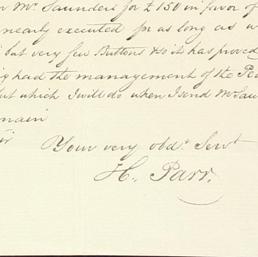 Mr. Saunders for £150 in favor of
nearly executed for as long as
but very few Buttons &c it has proved
had the management of the
but which I will do when I send Mr Sau
main
Your very obdt. Servt
H. Parr.